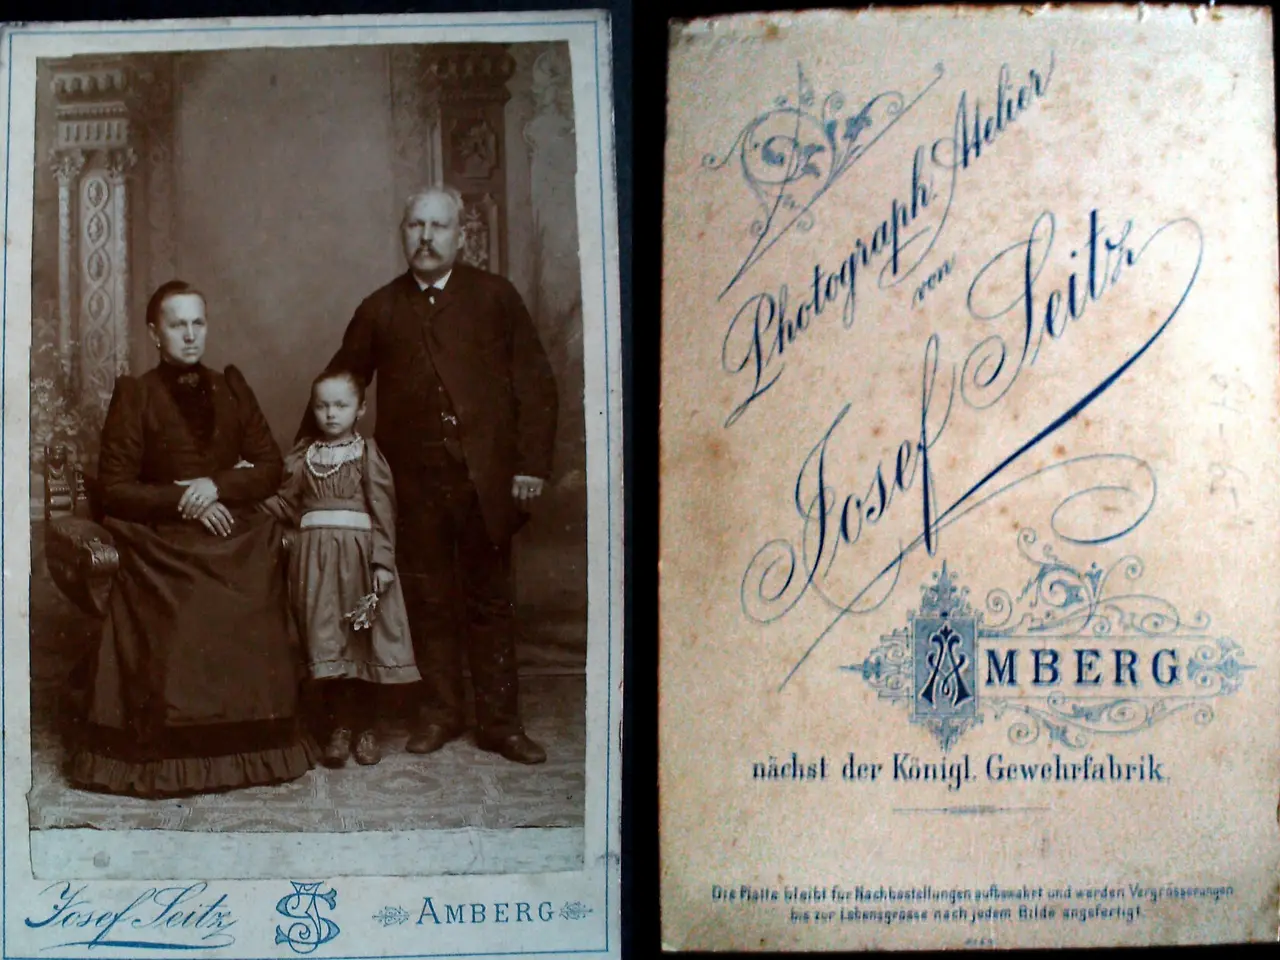 Josef Seitz
JS
AMBERG
Photograph. Atelier
von
Josef Seitz
AMBERG
nächst der Königl. Gewehrfabrik.
Die Platte bleibt für Nachbestellungen aufbewahrt und werden Vergrösserungen
bis zur Lebensgrösse nach jedem Bilde angefertigt.